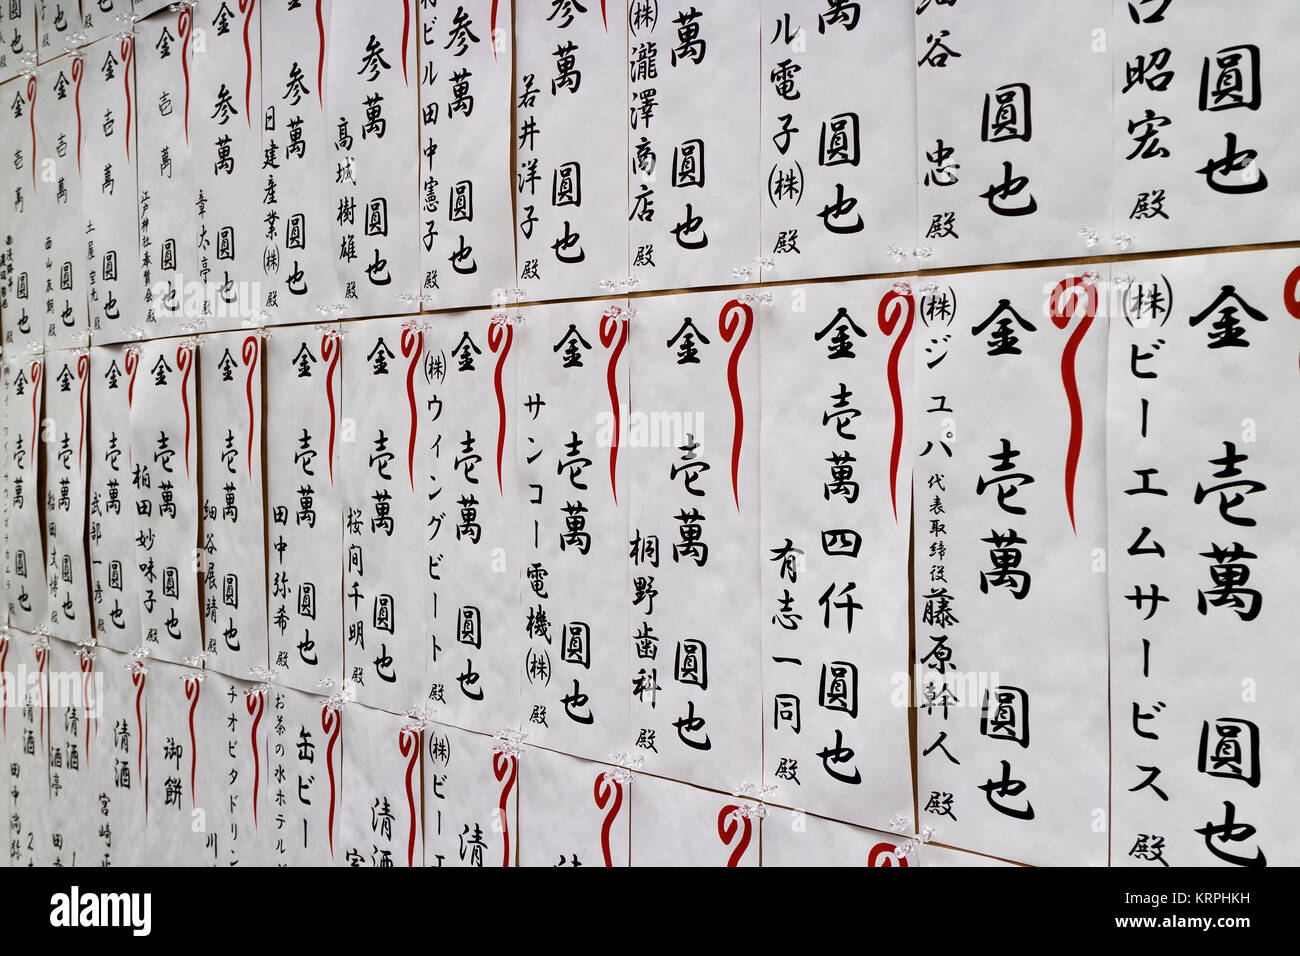 口昭宏殿
圓也
細谷忠殿
圓也
ル電子㈱殿
萬圓也
㈱瀧澤商店殿
萬圓也
若井洋子殿
参萬圓也
ビル田中憲子殿
参萬圓也
高城樹雄殿
参萬圓也
日建産業㈱殿
参萬圓也
章太亭殿
金参萬圓也
江戸神社奉賛会殿
金壱萬圓也
土屋
金壱萬圓也
西山
金壱萬圓也
金壱萬圓也
金壱萬圓也
㈱ビーエムサービス殿
金壱萬圓也
㈱ジュパ代表取締役藤原幹人殿
金壱萬四仟圓也
有志一同殿
金壱萬圓也
桐野歯科殿
金壱萬圓也
サンコー電機㈱殿
金壱萬圓也
㈱ウィングビート殿
金壱萬圓也
桜間千明殿
金壱萬圓也
田中弥希殿
金壱萬圓也
細谷展靖殿
金壱萬圓也
柏田妙味子殿
金壱萬圓也
武部一彦殿
金壱萬圓也
船田文博殿
金壱萬圓也
清
㈱ビーエ
清
缶ビー
お茶の水ホテル
チオビタドリン
川
御餅
清酒
宮崎
清酒
酒亭田
清酒
田中尚弥
alamy
Image ID: KRPHKH
www.alamy.com